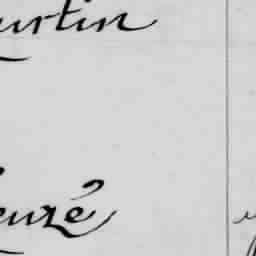 urtin
euzé